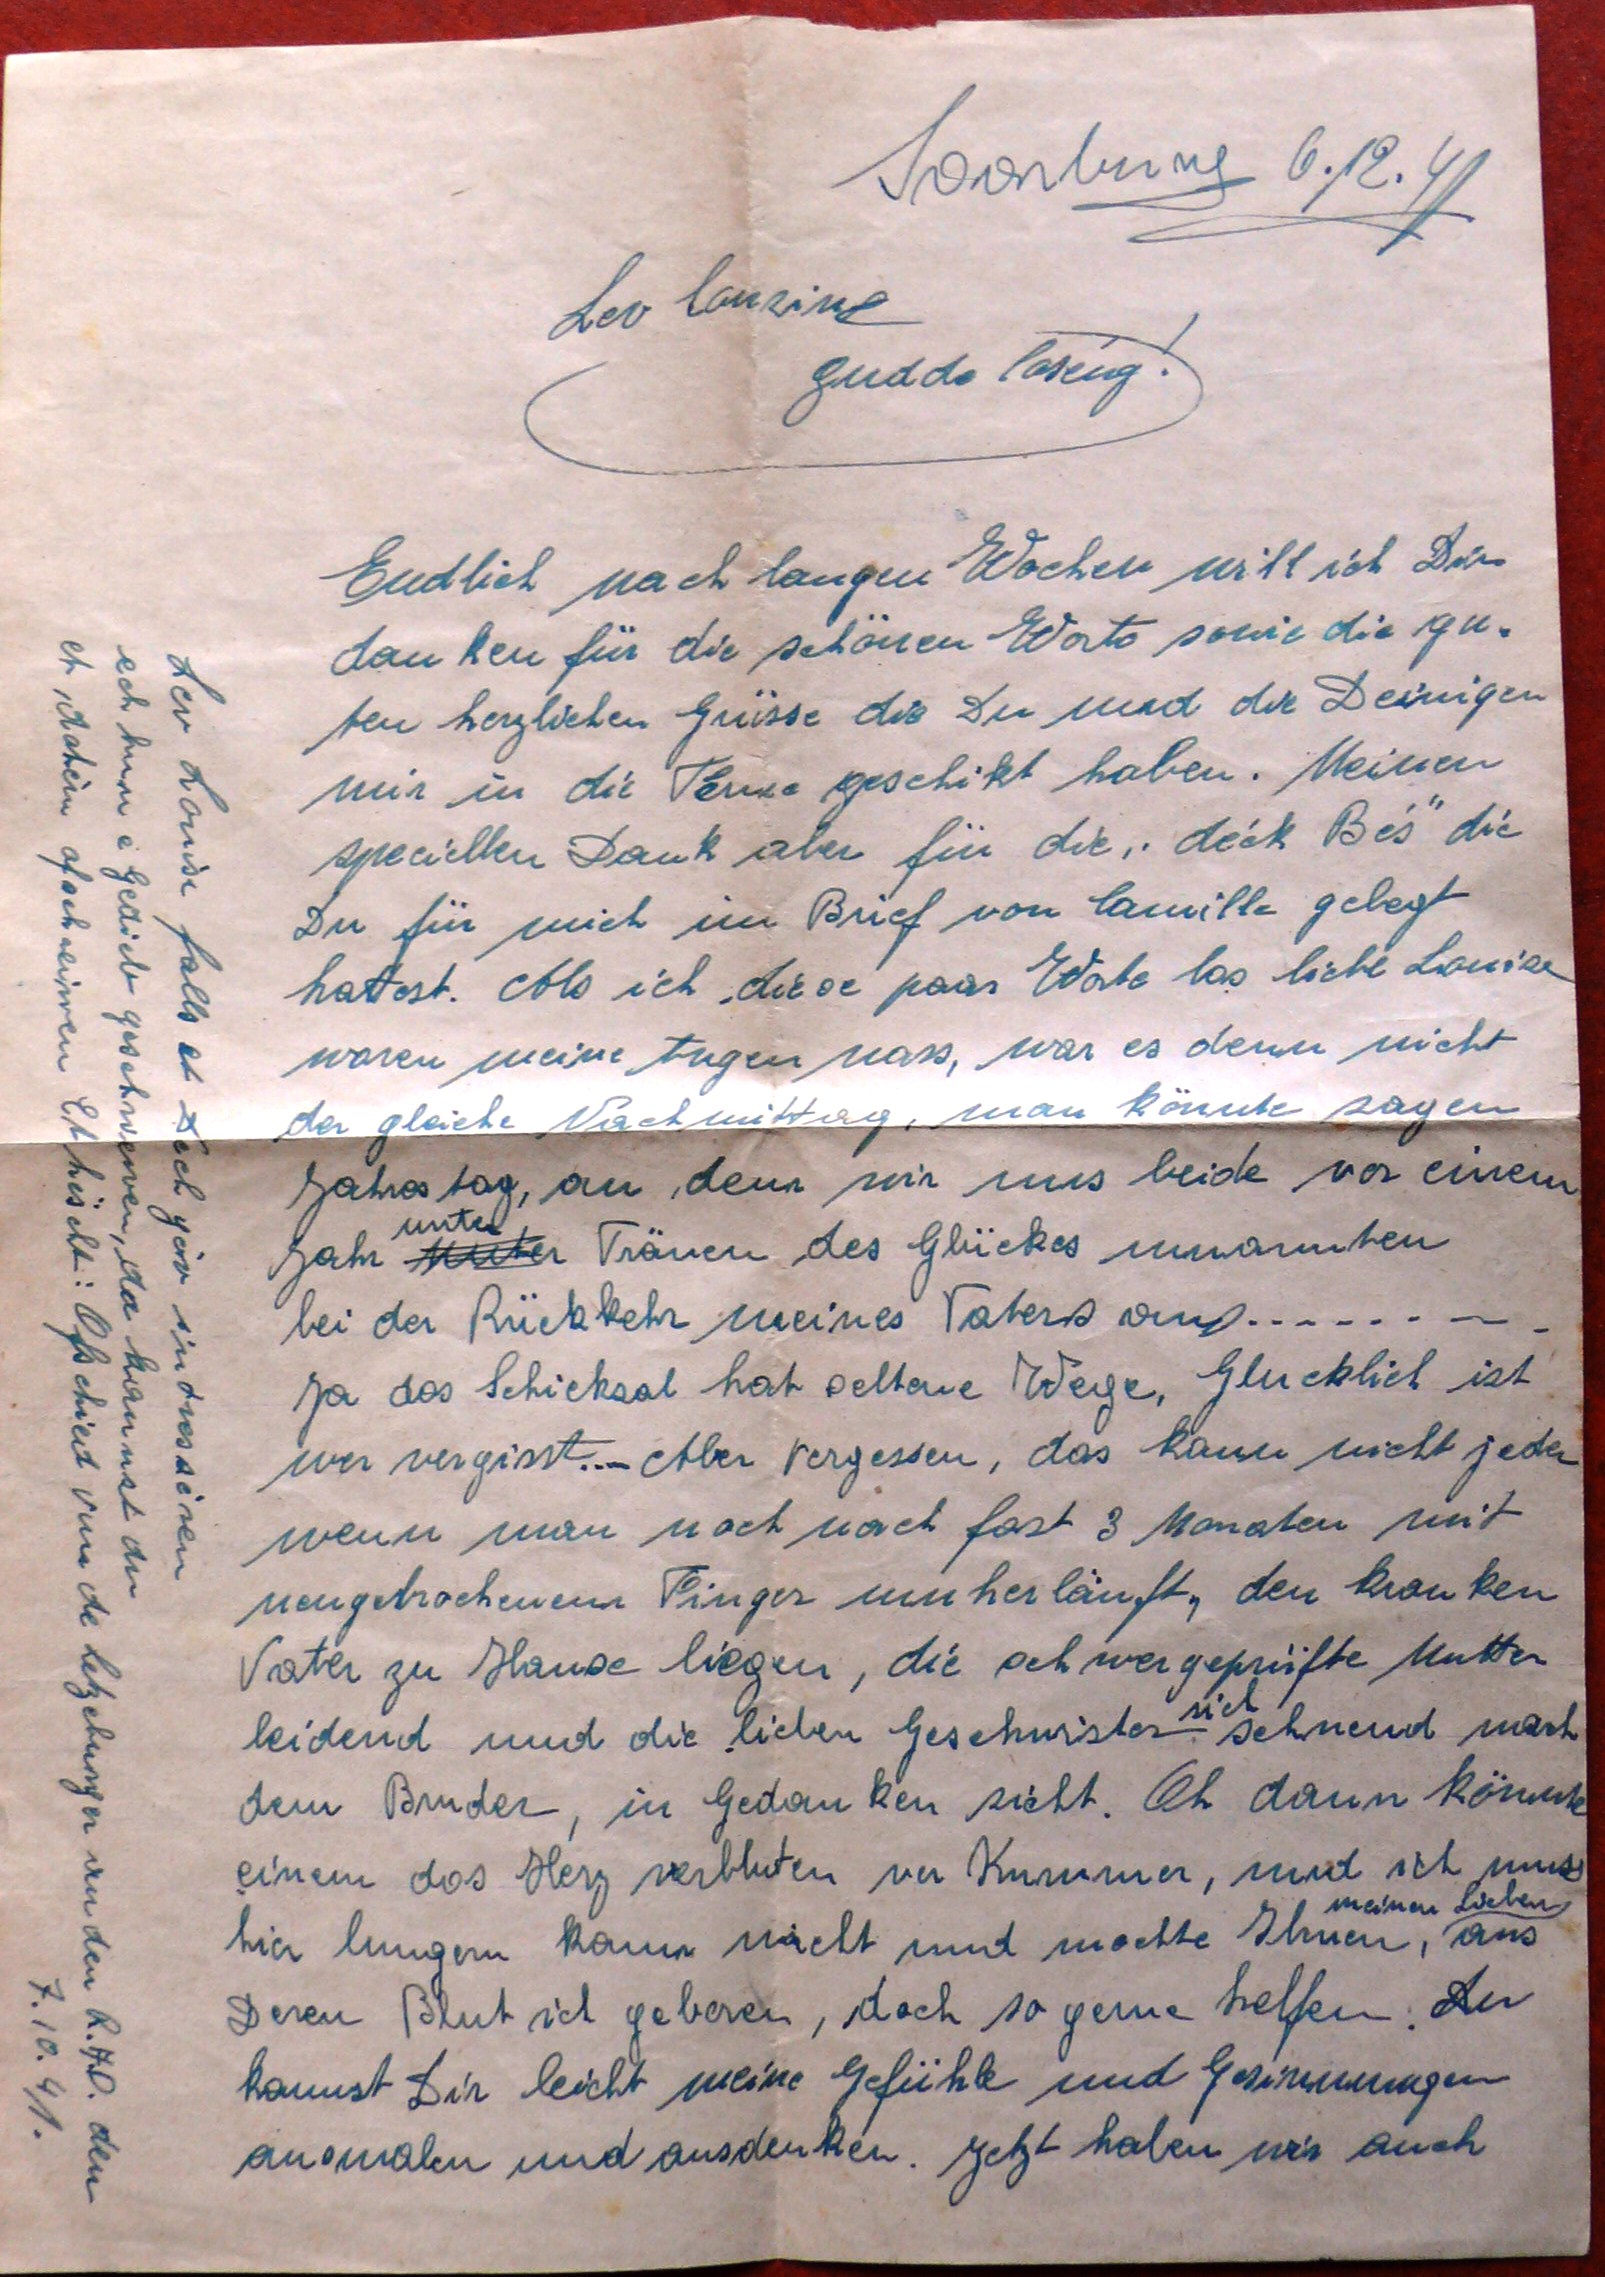 Saarburg 6.12.41
Lev Cousine
gudde Coseng!
Endlich nach langen Wochen will ich Dir
danken für die schönen Worte sowie die gu-
ten herzlichen Grüsse die Du und die Deinigen
mir in die Ferne geschikt haben. Meinen
speciellen Dank aber für die „déck Bés" die
Du für mich im Brief von Camille gelegt
hattest. Als ich diese paar Worte las liebe Louise
waren meine Augen nass, war es denn nicht
der gleiche Nachmittag, man könnte sagen
Jahrestag, an dem wir uns beide vor einem
Jahr unter Tränen des Glückes umarmten
bei der Rückkehr meines Vaters aus........
Ja das Schicksal hat seltene Wege, Glucklich ist
wer vergisst... Aber vergessen, das kann nicht jeder
wenn man noch nach fast 3 Monaten mit
neugebrochenem Finger umherläuft, den kranken
Vater zu Hause liegen, die schwergeprüfte Mutter
leidend und die lieben Geschwister sich sehnend nach
dem Bruder, in Gedanken sieht. Oh dann könnte
einem das Herz verbluten vor Kummer, und ich muss
hier lungern kann nicht und mochte Ihnen, meinen Lieben, aus
Deren Blut ich geboren, doch so gerne helfen. Du
kannst Dir leicht meine Gefühle und Gesinnungen
ausmalen und ausdenken. Jetzt haben wir auch
Lev Louise falls et Dech géiw intressiren
ech hunn e Gedicht geschriwen, da kannst du
et schéin ofschreiwen Et héscht: Ofschied vun de letzeburger an den R.A.D. den
7.10.41.